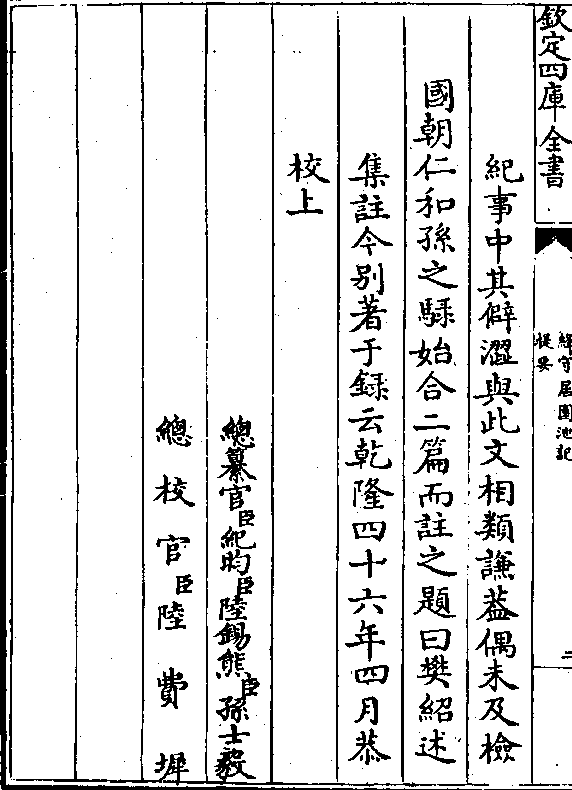 欽定四庫全書
絳守居園池記
提要
二
紀事中其僻澀與此文相類謙葢偶未及檢
國朝仁和孫之騄始合二篇而註之題曰樊紹述
集註今別著于録云乾隆四十六年四月恭
校上
總纂官臣紀昀臣陸錫熊臣孫士毅
總校官臣陸費墀